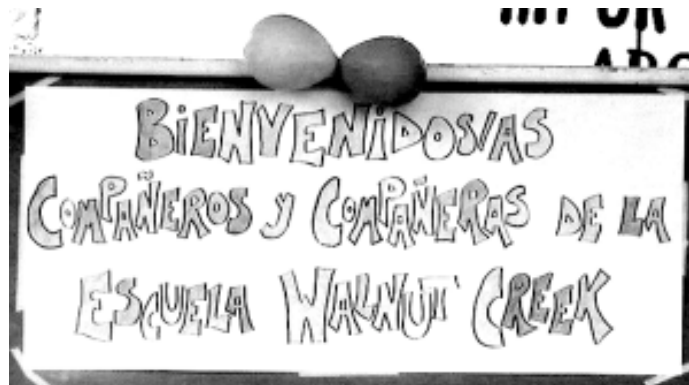 BiENVENiDOS/AS
COMPAÑEROS y COMPAÑERAS DE LA
ESCUELA WALNUT CREEK